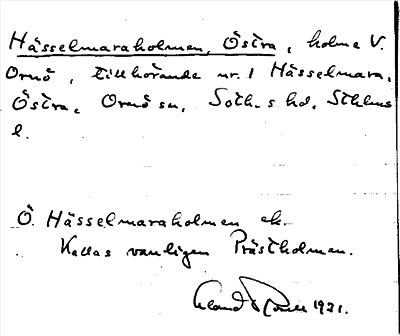 Hässelmaraholmen, Östra, holme V.
Ornö, tillhörande nr. 1 Hässelmara,
Östra, Ornö sn, Soth-s hd, Sthlms
l.
Ö. Hässelmaraholmen ek.
Kallas vanligen Prästholmen.
1921.